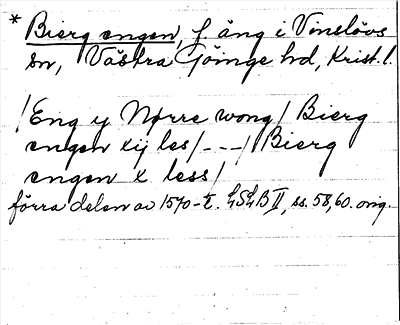 * Bierg engen, f äng i Vinslövs
sn, Västra Göinge hd, Krist. l.
/Eng y Nørre wong/ Bierg
engen xij les/---/ Bierg
engen x less/
förra delen av 1570-t. LSLB II, ss. 58, 60. orig.